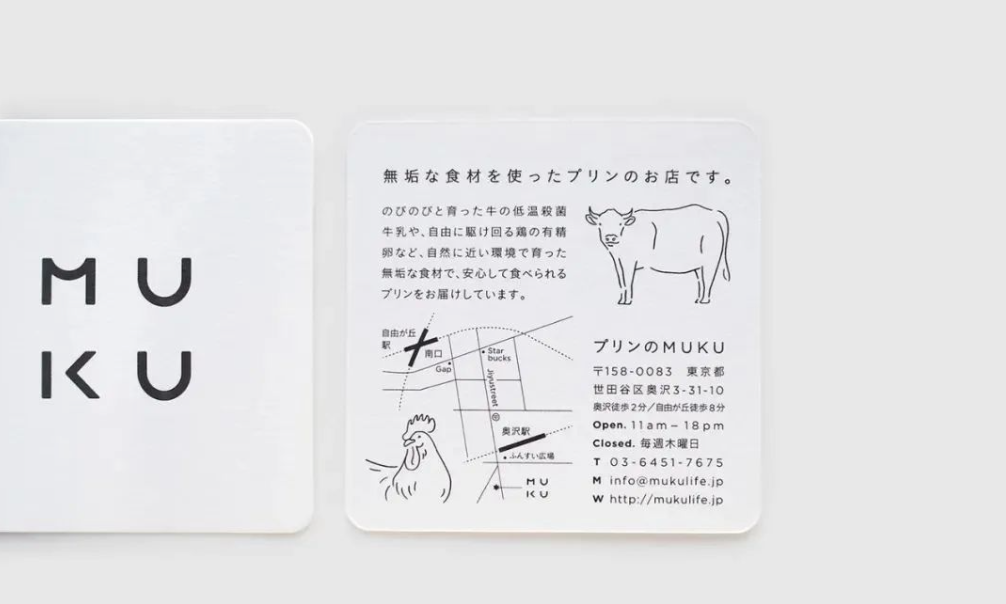 MU
KU
無垢な食材を使ったプリンのお店です。
のびのびと育った牛の低温殺菌
牛乳や、自由に駆け回る鶏の有精
卵など、自然に近い環境で育った
無垢な食材で、安心して食べられる
プリンをお届けしています。
自由が丘
駅
南口
Gap
Star
bucks
Jiyustreet
奥沢駅
ふんすい広場
MU
KU
プリンのMUKU
〒158-0083 東京都
世田谷区奥沢3-31-10
奥沢徒歩2分/自由が丘徒歩8分
Open. 11am – 18pm
Closed. 毎週木曜日
T 03-6451-7675
M info@mukulife.jp
W http://mukulife.jp